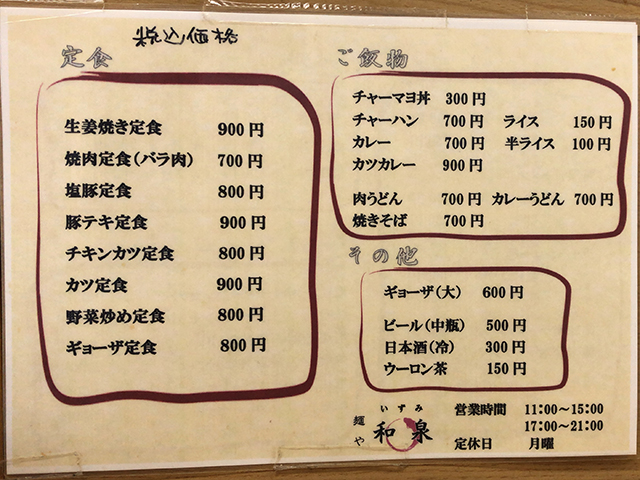 税込価格
定食
生姜焼き定食 900円
焼肉定食(バラ肉) 700円
塩豚定食 800円
豚テキ定食 900円
チキンカツ定食 800円
カツ定食 900円
野菜炒め定食 800円
ギョーザ定食 800円
ご飯物
チャーマヨ丼 300円
チャーハン 700円 ライス 150円
カレー 700円 半ライス 100円
カツカレー 900円
肉うどん 700円 カレーうどん 700円
焼きそば 700円
その他
ギョーザ(大) 600円
ビール(中瓶) 500円
日本酒(冷) 300円
ウーロン茶 150円
麺や
いずみ
和泉
営業時間 11:00〜15:00
17:00〜21:00
定休日 月曜